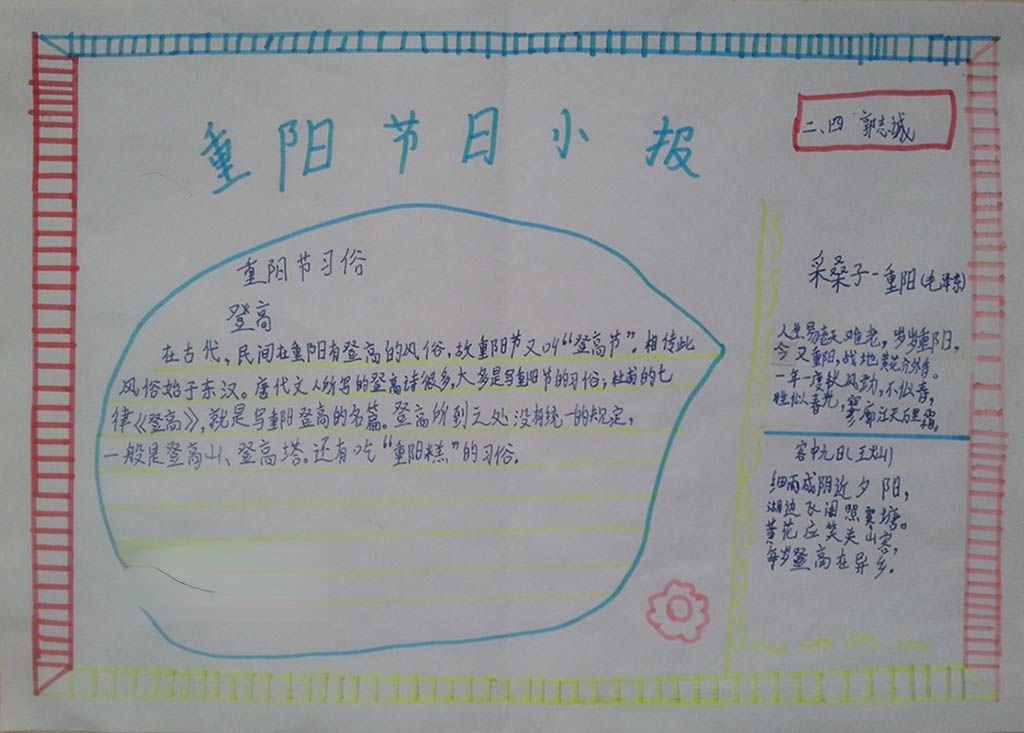 重阳节日小报
二、四 郭志诚
重阳节习俗
登高
在古代，民间在重阳有登高的风俗，故重阳节又叫“登高节”。相传此
风俗始于东汉。唐代文人所写的登高诗很多，大多是写重阳节的习俗；杜甫的七
律《登高》，就是写重阳登高的名篇。登高所到之处没有统一的规定，
一般是登高山、登高塔。还有吃“重阳糕”的习俗。
采桑子-重阳(毛泽东)
人生易老天难老，岁岁重阳，
今又重阳，战地黄花分外香。
一年一度秋风劲，不似春，
胜似春光，寥廓江天万里霜。
客中九日(王灿)
细雨成阴近夕阳，
湖边飞阁照寒塘。
黄花应笑关山客，
每岁登高在异乡。